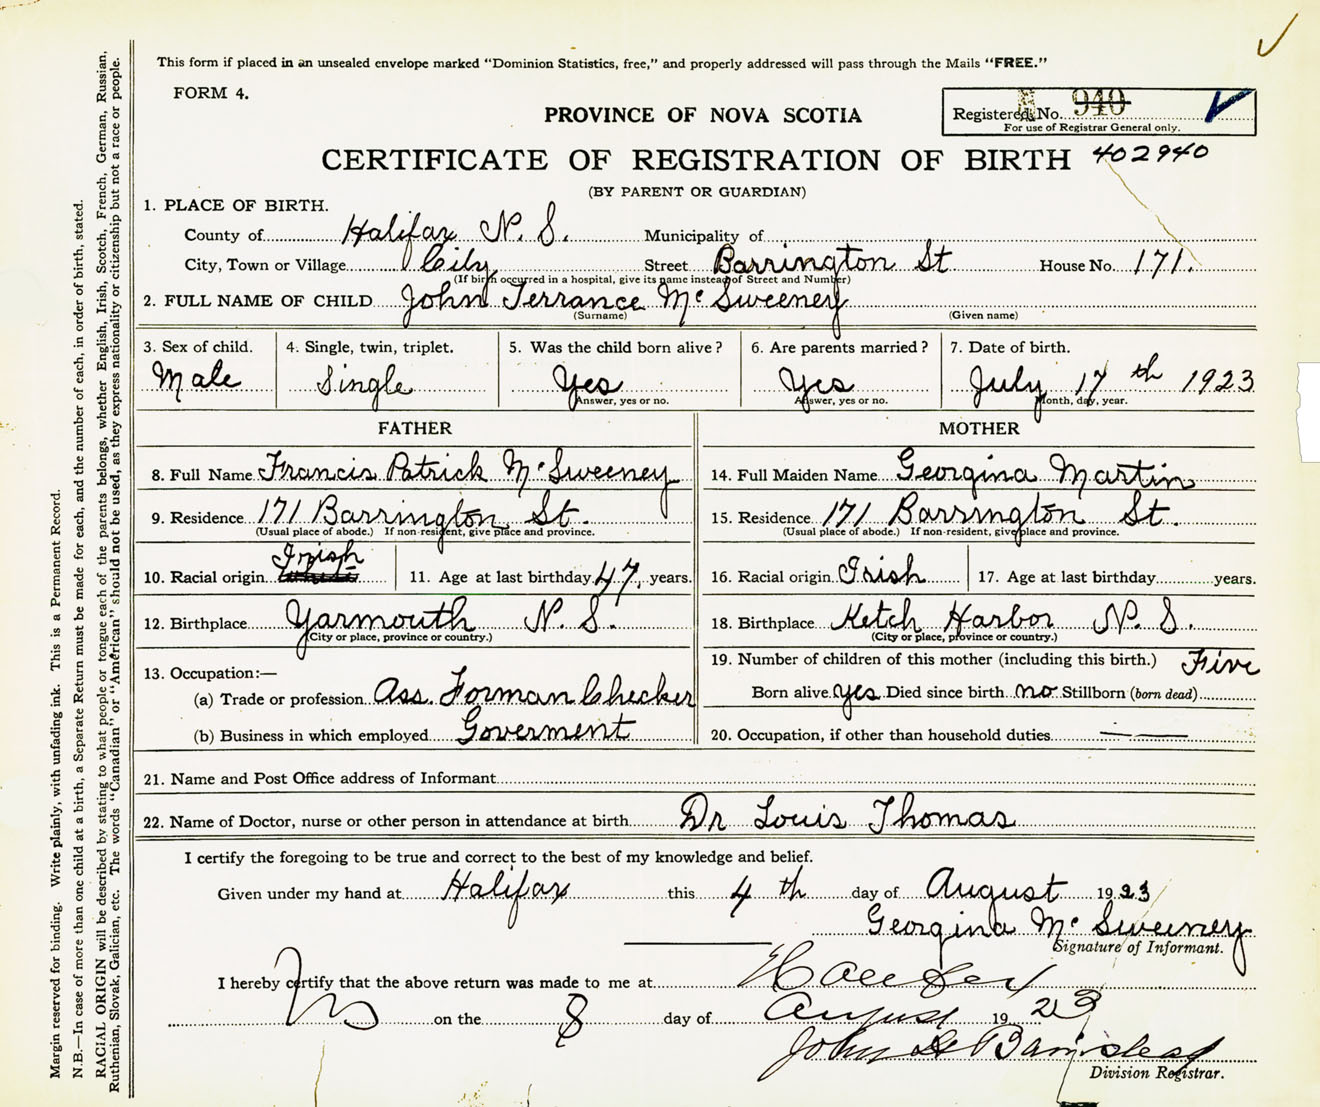 This form if placed in an unsealed envelope marked "Dominion Statistics, free," and properly addressed will pass through the Mails "FREE."
FORM 4.
PROVINCE OF NOVA SCOTIA
Registered No. 940
For use of Registrar General only.
CERTIFICATE OF REGISTRATION OF BIRTH 402940
(BY PARENT OR GUARDIAN)
1. PLACE OF BIRTH.
County of Halifax N. S. Municipality of
City, Town or Village City Street Barrington St House No. 171.
(If birth occurred in a hospital, give its name instead of Street and Number)
2. FULL NAME OF CHILD John Terrance Mc Sweeney
(Surname) (Given name)
3. Sex of child. 4. Single, twin, triplet. 5. Was the child born alive? 6. Are parents married? 7. Date of birth.
Male Single Yes Yes July 17 th 1923
Answer, yes or no. Answer, yes or no. Month, day, year.
FATHER
8. Full Name Francis Patrick Mc Sweeney
9. Residence 171 Barrington St.
(Usual place of abode.) If non-resident, give place and province.
10. Racial origin Irish 11. Age at last birthday 47. years.
12. Birthplace Yarmouth N. S.
(City or place, province or country.)
13. Occupation:—
(a) Trade or profession Ass. Forman Checker
(b) Business in which employed Goverment
MOTHER
14. Full Maiden Name Georgina Martin
15. Residence 171 Barrington St.
(Usual place of abode.) If non-resident, give place and province.
16. Racial origin Irish 17. Age at last birthday years.
18. Birthplace Ketch Harbor N. S.
(City or place, province or country.)
19. Number of children of this mother (including this birth.) Five
Born alive yes Died since birth no Stillborn (born dead)
20. Occupation, if other than household duties —
21. Name and Post Office address of Informant
22. Name of Doctor, nurse or other person in attendance at birth Dr Louis Thomas
I certify the foregoing to be true and correct to the best of my knowledge and belief.
Given under my hand at Halifax this 4 th day of August 1923
Georgina Mc Sweeney
Signature of Informant.
I hereby certify that the above return was made to me at Halifax
on the 8 day of August 1923
John
Division Registrar.
Margin reserved for binding. Write plainly, with unfading ink. This is a Permanent Record.
N.B.—In case of more than one child at a birth, a Separate Return must be made for each, and the number of each, in order of birth, stated.
RACIAL ORIGIN will be described by stating to what people or tongue each of the parents belongs, whether English, Irish, Scotch, French, German, Russian,
Ruthenian, Slovak, Galician, etc. The words "Canadian" or "American" should not be used, as they express nationality or citizenship but not a race or people.